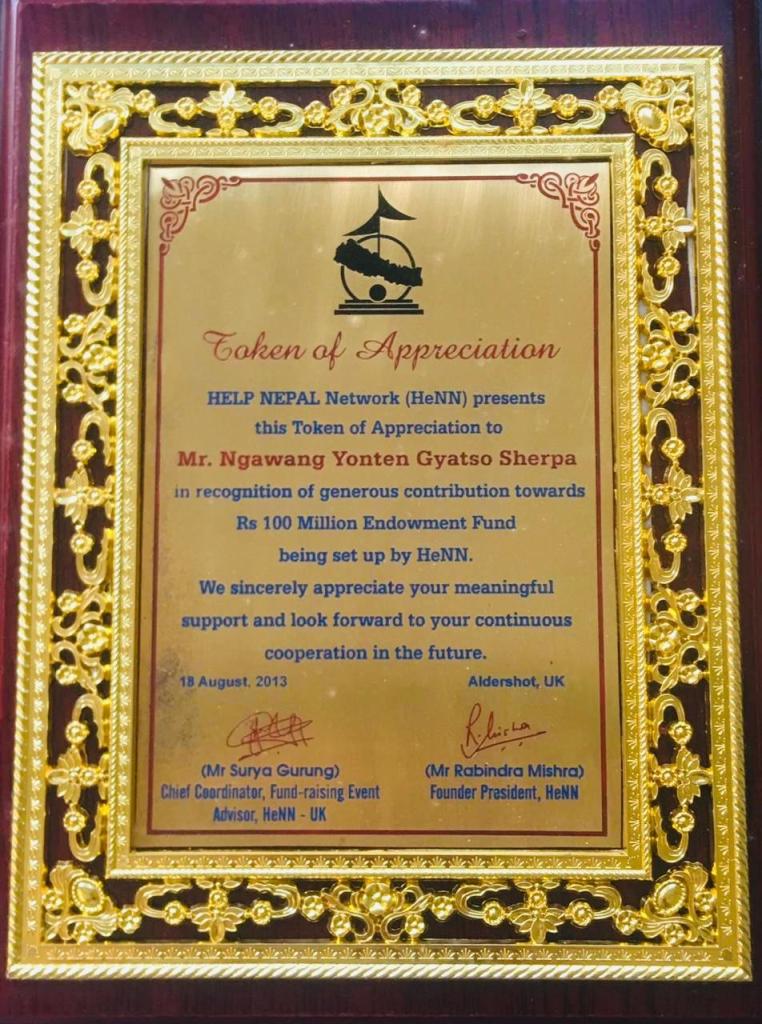 Token of Appreciation
HELP NEPAL Network (HeNN) presents
this Token of Appreciation to
Mr. Ngawang Yonten Gyatso Sherpa
in recognition of generous contribution towards
Rs 100 Million Endowment Fund
being set up by HeNN.
We sincerely appreciate your meaningful
support and look forward to your continuous
cooperation in the future.
18 August, 2013 Aldershot, UK
R. Mishra
(Mr Surya Gurung) (Mr Rabindra Mishra)
Chief Coordinator, Fund-raising Event Founder President, HeNN
Advisor, HeNN - UK